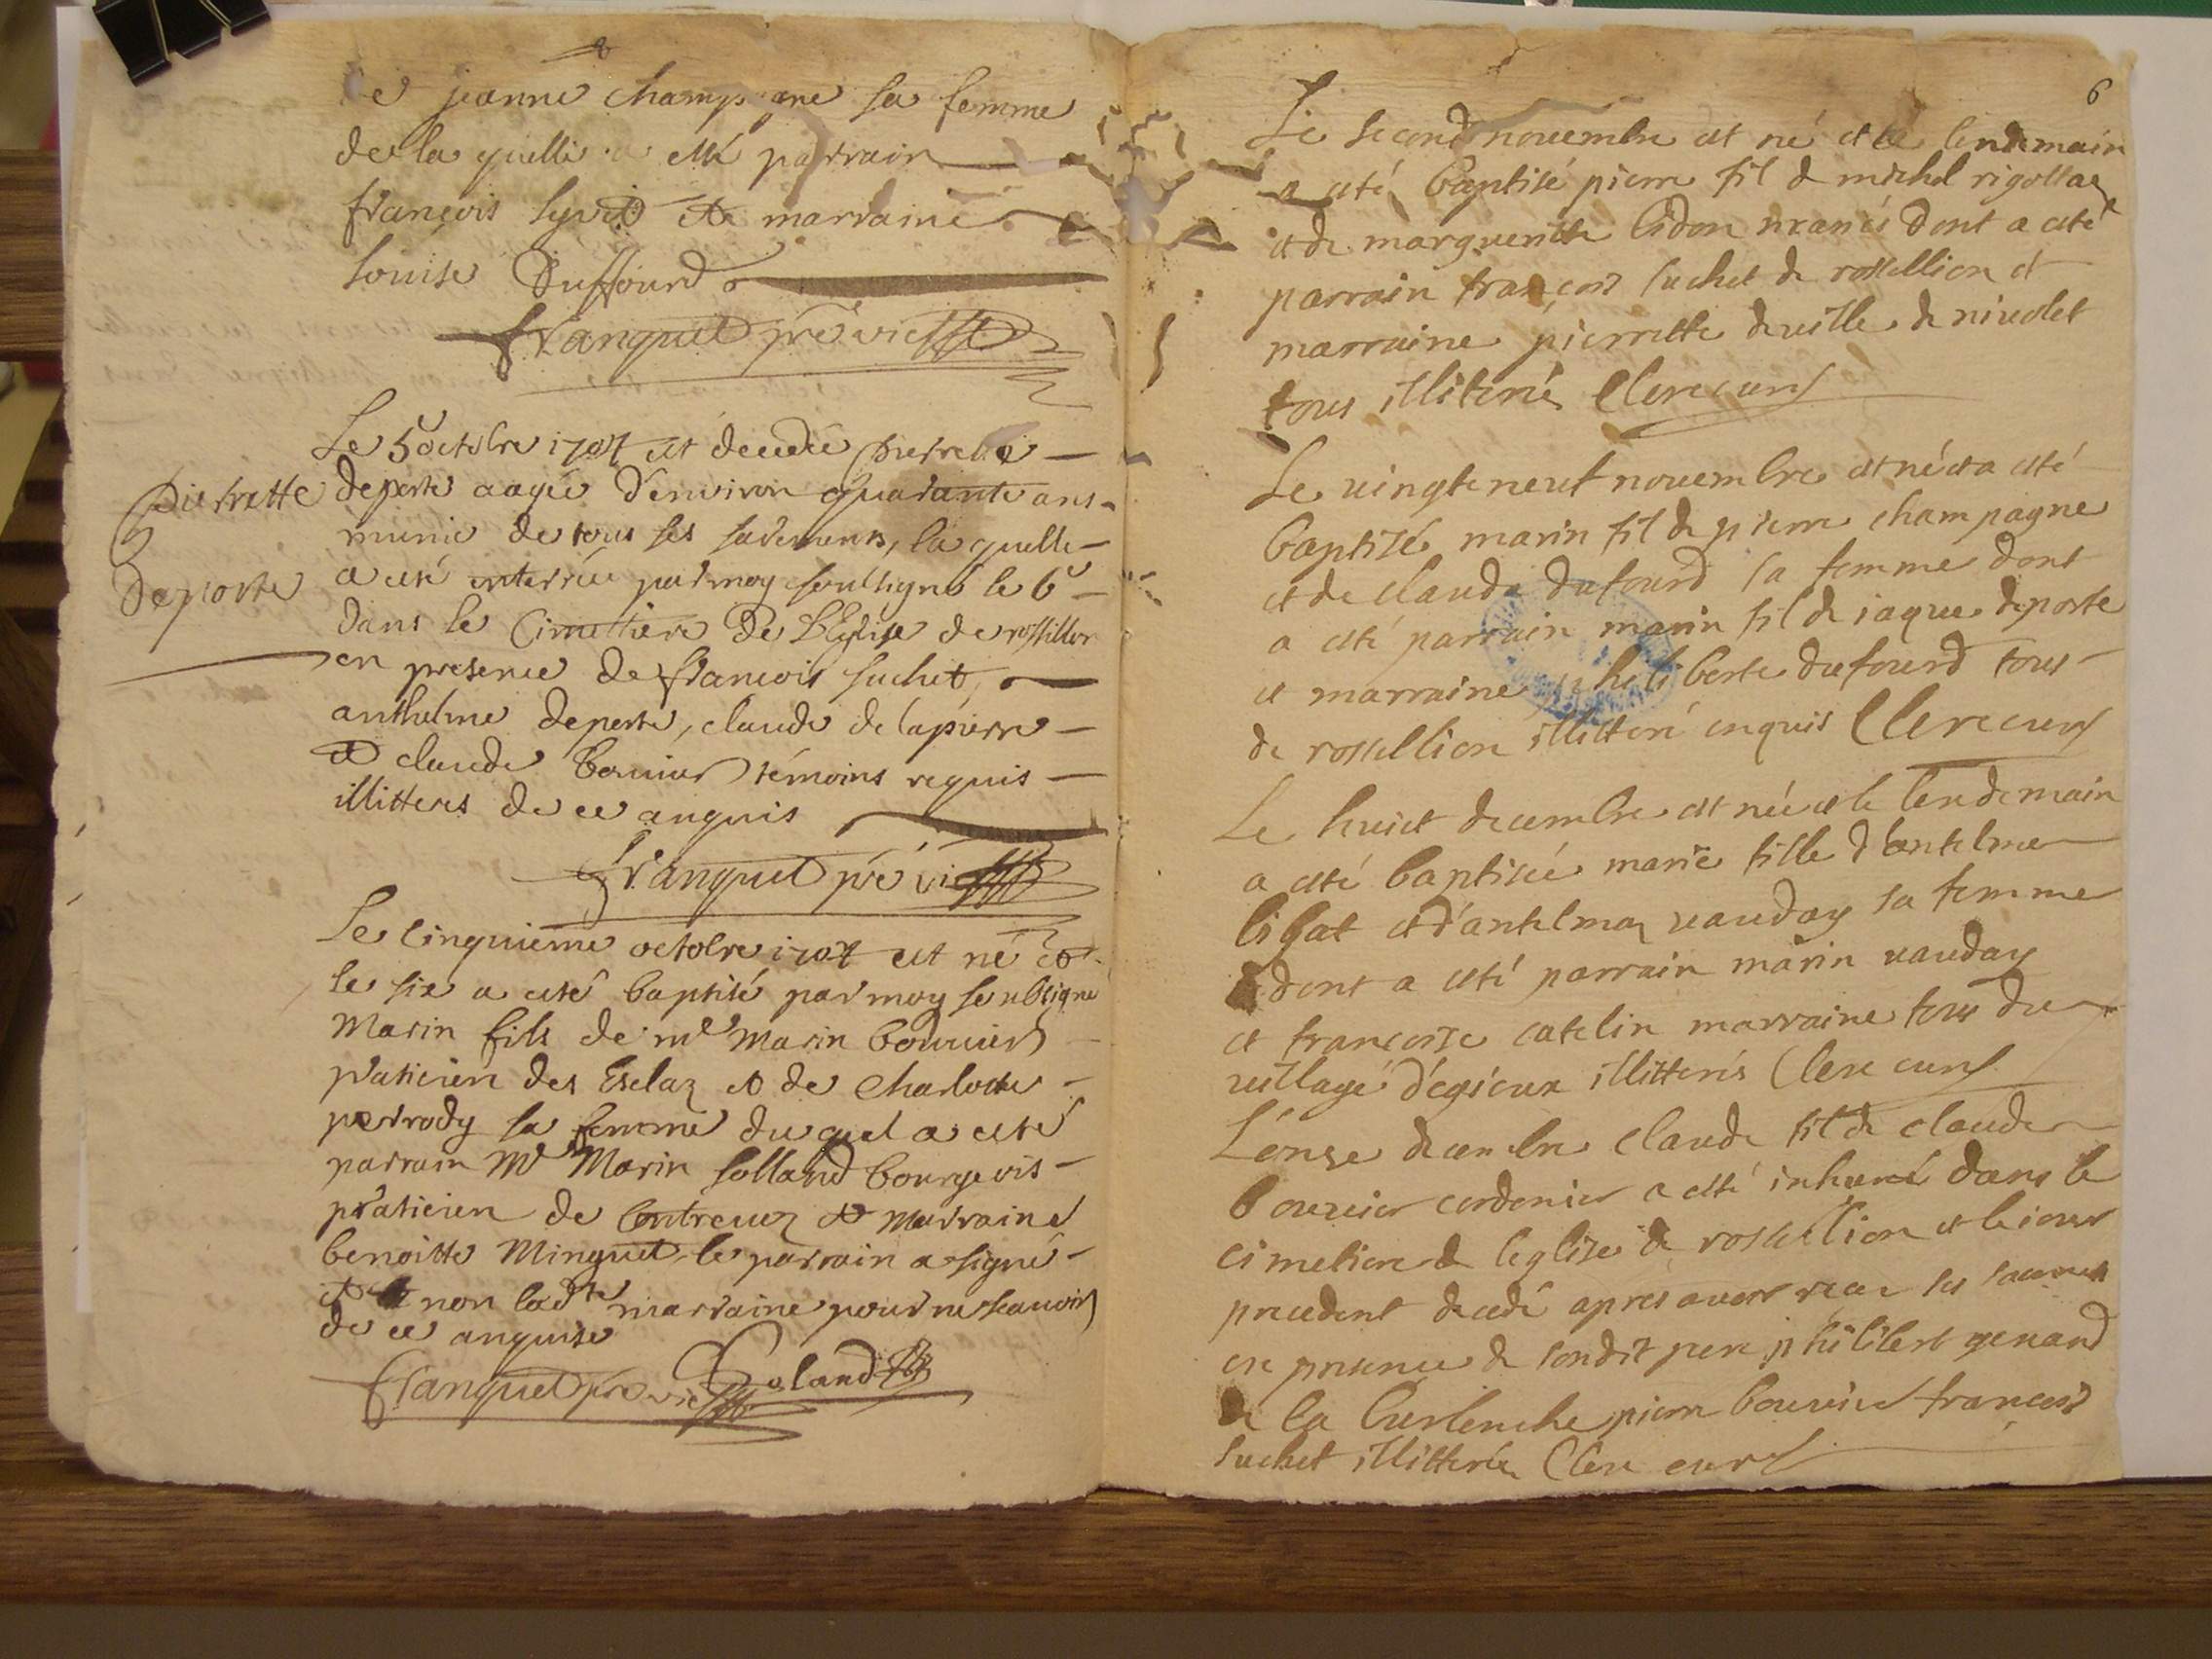 de jeanne champagne sa femme
de la quelle a esté parrain
françois lyvet et marraine
louise Duffourd
franquet pre vic
Le 5 octobre 1707 est decedée pierrette
Pierrette
deporte aagée d'environ quarante ans
munie de tous ses sacremens, la quelle
Deporte
a esté enterrée par moy soussigné le 6e
dans le Cimettiere de L'Eglise de rossillon
en presence de françois suchet,
anthelme deporte, claude de lapierre
et claude bouvier témoins requis
illitterés de ce anquis
franquet pre vic
Le cinquieme octobre 1707 est né et
le six a esté baptisé par moy soubsigné
Marin fils de me Marin bouvier
praticien des Esclaz et de Charlotte
perrody sa femme du quel a esté
parrain Me Marin solland bourgeois
praticien de Contreuoz et Marraine
benoitte Minguet le parrain a signé
et non ladte marraine pour ne scauoir
de ce anquise
franquet pre vic Soland
6
Le second nouembre est né et le lendemain
a esté baptisé pierre fil de michel rigollaz
et de marguerite lidon mariés dont a esté
parrain françois suchet de rossellion et
marraine pierrette deuille de niuolet
tous illiterés Clerc curé
Le vingteneuf nouembre est né et a esté
baptisé marin fil de pierre champagne
et de claude dufourd sa femme dont
a esté parrain marin fil de iaque deporte
et marraine philiberte dufourd tous
de rossellion illitteré enquis Clerc curé
Le huict decembre est née et le lendemain
a esté baptisée marie fille d'antelme
ligat et d'antelma vauday sa femme
dont a esté parrain marin vauday
et françoise catelin marraine tous du
village d'egieux illitterés Clerc curé
L'onze decembre claude fil de claude
bouvier cordonier a esté inhumé dans le
cimetiere de leglise de rossellion et le iour
precedent decedé apres auoir receu les sacremens
en presence de sondit pere philibert genand
de la burbenche pierre bouvier françois
suchet illitterés Clerc curé